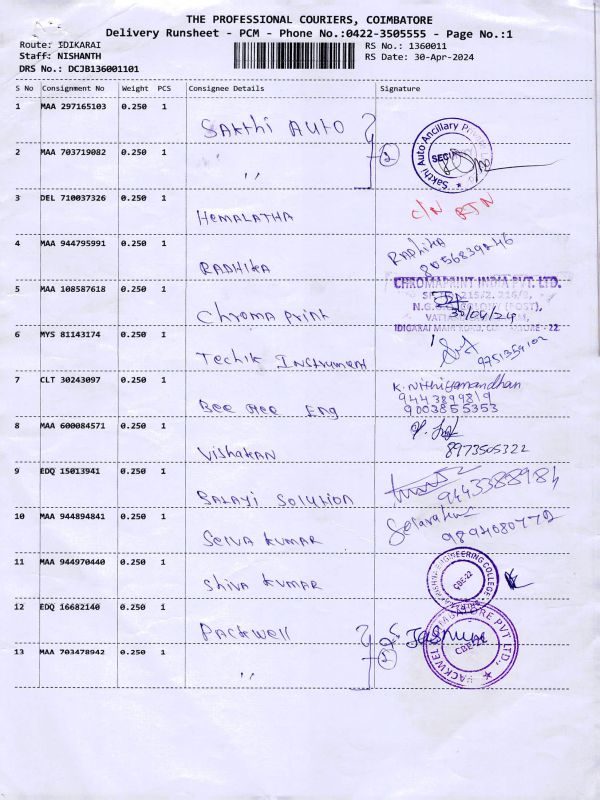 THE PROFESSIONAL COURIERS, COIMBATORE
Delivery Runsheet - PCM - Phone No.:0422-3505555 - Page No.:1
Route: IDIKARAI
RS No.: 1360011
Staff: NISHANTH
RS Date: 30-Apr-2024
DRS No.: DCJB136001101
S No Consignment No Weight PCS Consignee Details Signature
1 MAA 297165103 0.250 1 Sakthi Auto
2 MAA 703719082 0.250 1 " 2
Sakthi Auto Ancillary
3 DEL 710037326 0.250 1 Hemalatha C/N RTN
4 MAA 944795991 0.250 1 Radhika Radhika
8056839246
5 MAA 108587618 0.250 1 Chroma print
CHROMAPRINT INDIA PVT. LTD.
30/04/24
6 MYS 81143174 0.250 1 Techik Instrument
9751359102
7 CLT 30243097 0.250 1 Bee Gee Eng
K. Nithiyanandhan
9443899819
9003855353
8 MAA 600084571 0.250 1 Vishakan
8973505322
9 EDQ 15013941 0.250 1 Balaji Solution
9443388984
10 MAA 944894841 0.250 1 Selva Kumar
9894080772
11 MAA 944970440 0.250 1 Shiva Kumar
ENGINEERING COLLEGE
CBE-22
12 EDQ 16682140 0.250 1 Packwell
13 MAA 703478942 0.250 1 " 2